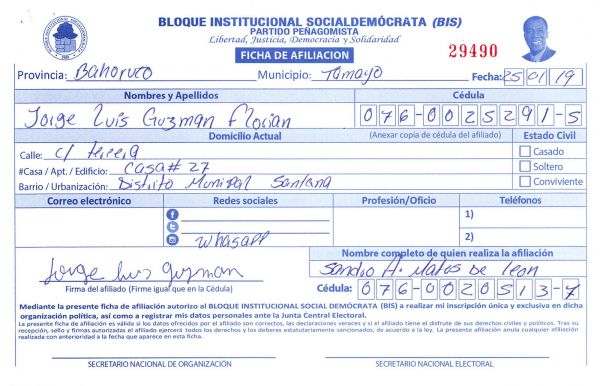 BLOQUE INSTITUCIONAL SOCIALDEMÓCRATA (BIS)
PARTIDO PEÑAGOMISTA
Libertad, Justicia, Democracia y Solidaridad
FICHA DE AFILIACION
29490
Provincia: Bahoruco Municipio: Tamayo Fecha: 25/01/19
Nombres y Apellidos Cédula
Jorge Luis Guzman Florian 076-0025291-5
Domicilio Actual (Anexar copia de cédula del afiliado) Estado Civil
Calle: c/ tercera Casado
#Casa / Apt. / Edificio: Casa # 27 Soltero
Barrio / Urbanización: Distrito Munisipal Santana Conviviente
Correo electrónico Redes sociales Profesión/Oficio Teléfonos
1)
whasapp 2)
Nombre completo de quien realiza la afiliación
Jorge luis guzman Sandro A. Matos De leon
Firma del afiliado (Firme igual que en la Cédula) Cédula: 076-0020513-7
Mediante la presente ficha de afiliación autorizo al BLOQUE INSTITUCIONAL SOCIAL DEMÓCRATA (BIS) a realizar mi inscripción única y exclusiva en dicha
organización política, así como a registrar mis datos personales ante la Junta Central Electoral.
La presente ficha de afiliación es válida si los datos ofrecidos por el afiliado son correctos, las declaraciones veraces y si el afiliado tiene el disfrute de sus derechos civiles y políticos. Tras su
recepción, sello y firmas autorizadas el afiliado ejercerá todos los derechos y los deberes estatutariamente sancionados, de acuerdo a la ley. La presente afiliación anula cualquier afiliación
realizada con anterioridad a la fecha que aparece en esta ficha.
SECRETARIO NACIONAL DE ORGANIZACIÓN SECRETARIO NACIONAL ELECTORAL